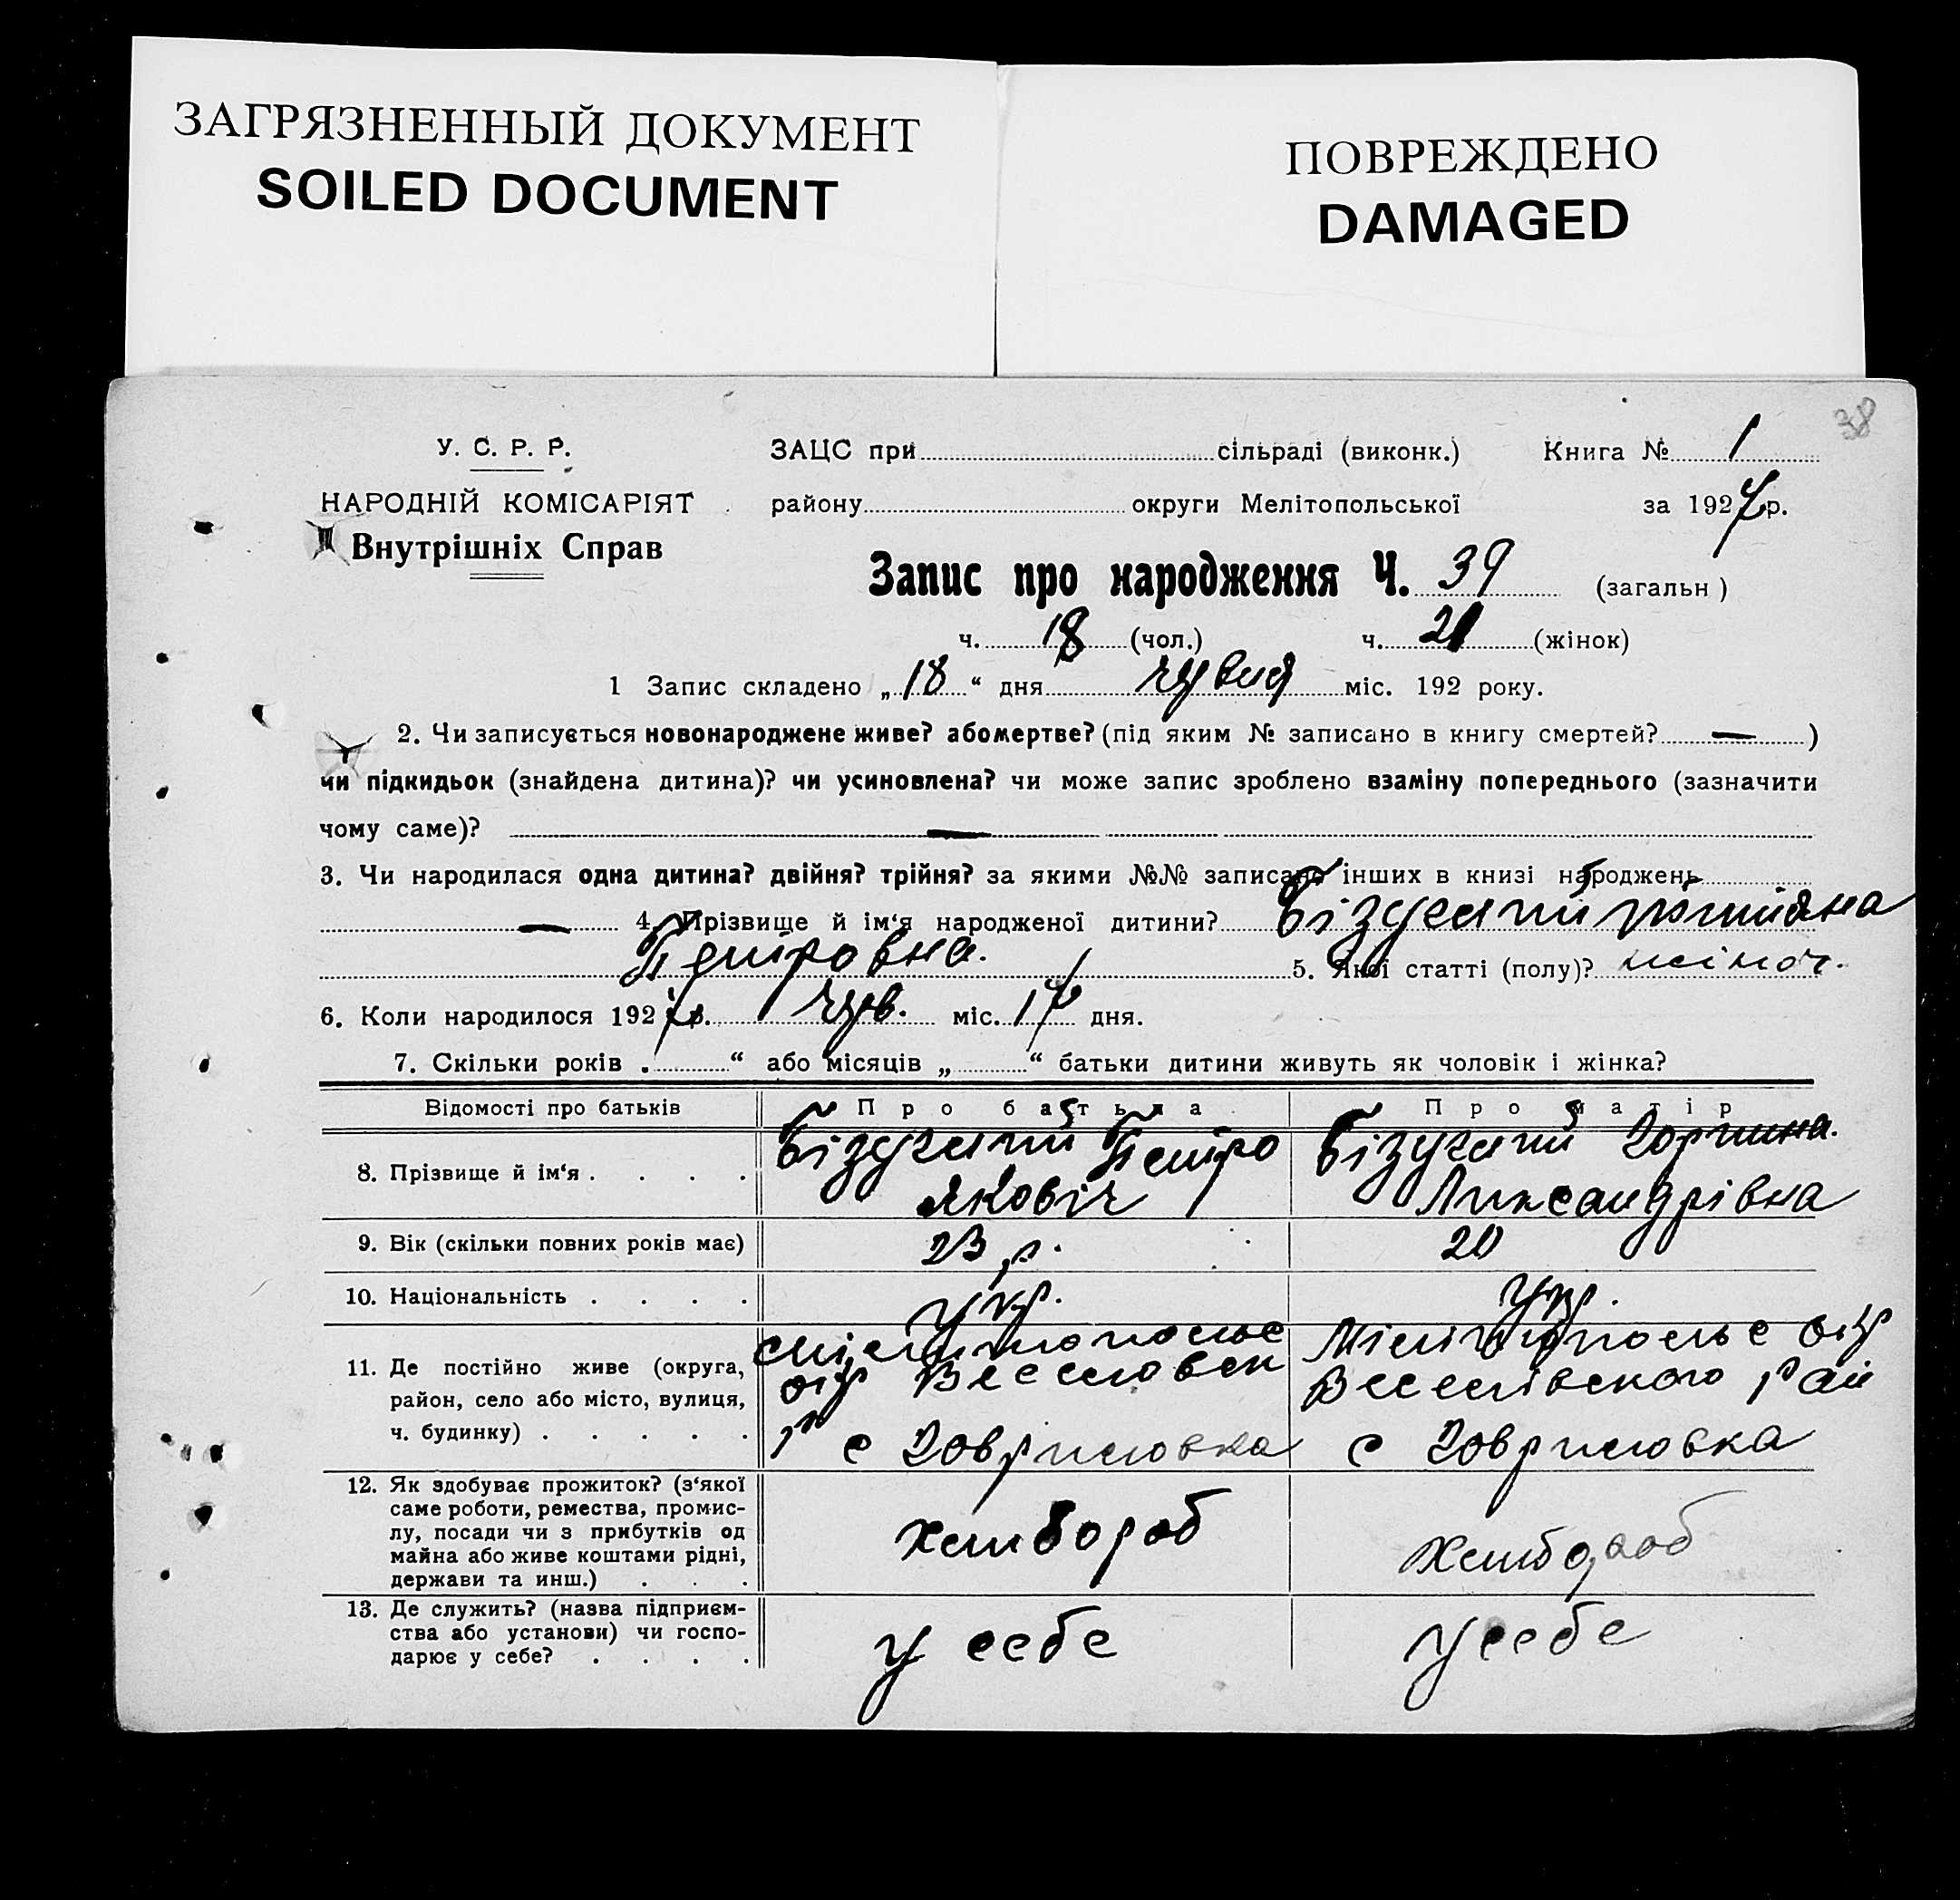 ЗАГРЯЗНЕННЫЙ ДОКУМЕНТ
SOILED DOCUMENT
ПОВРЕЖДЕНО
DAMAGED
38
У. С. Р. Р.
НАРОДНІЙ КОМІСАРІЯТ
Внутрішніх Справ
ЗАЦС при сільраді (виконк.) Книга № 1
району округи Мелітопольської за 1927 р.
Запис про народження Ч. 39 (загальн)
ч. 18 (чол.) ч. 21 (жінок)
1 Запис складено „18“ дня червня міс. 192 року.
2. Чи записується новонароджене живе? або мертве? (під яким № записано в книгу смертей? — )
чи підкидьок (знайдена дитина)? чи усиновлена? чи може запис зроблено взаміну попереднього (зазначити
чому саме)? —
3. Чи народилася одна дитина? двійня? трійня? за якими №№ записано інших в книзі народжень
— 4. Прізвище й ім‘я народженої дитини?
Петровна. 5. Якої статті (полу)? жіноч.
6. Коли народилося 1927 р. черв. міс. 17 дня.
7. Скільки років „ “ або місяців „ “ батьки дитини живуть як чоловік і жінка?
Відомості про батьків Про батька Про матір
8. Прізвище й ім‘я Петро
Яковіч
Лиександрівна
9. Вік (скільки повних років має) 23 р. 20
10. Національність укр. укр.
11. Де постійно живе (округа,
район, село або місто, вулиця,
ч. будинку)
окр Веселовск
р с Говриловка
окр
Веселівского рай
с Говриловка
12. Як здобуває прожиток? (з‘якої
саме роботи, ремества, промис-
лу, посади чи з прибутків од
майна або живе коштами рідні,
держави та инш.)
хлибороб
хлибороб
13. Де служить? (назва підприєм-
ства або установи) чи госпо-
дарює у себе?
у себе
у себе